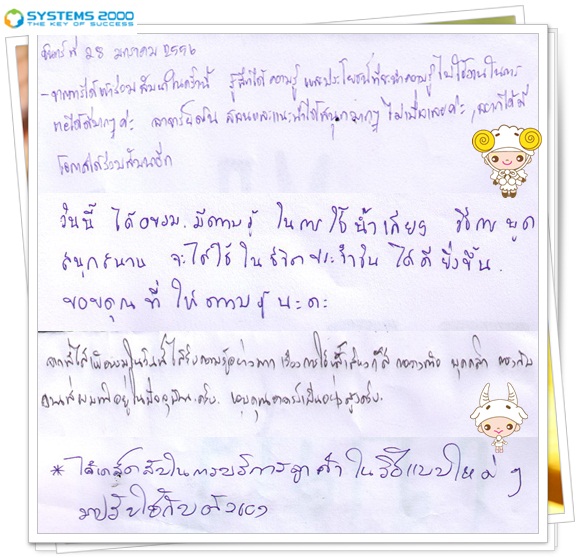 SYSTEMS 2000
THE KEY OF SUCCESS
วันจันทร์ที่ 28 มกราคม 2556
- จากการได้เข้าร่วมสัมมนาในครั้งนี้ รู้สึกได้ความรู้ และประโยชน์ที่จะนำความรู้ไปใช้งานในการ
ได้ดีมากๆ ค่ะ อาจารย์ สอนและแนะนำได้สนุกมากๆ ไม่เบื่อเลยค่ะ
โอกาสได้ร่วมสัมมนาอีก
วันนี้ ได้อบรม. มีความรู้ ในการใช้น้ำเสียง วิธีการพูด
สนุกสนาน จะได้ใช้ในชีวิตประจำวัน ได้ดียิ่งขึ้น.
ขอขอบคุณที่ให้ความรู้นะคะ
ในวันนี้ได้รับความรู้อย่างมาก เรื่องการใช้น้ำเสียง
อยู่ในปัจจุบันครับ. ขอบคุณอาจารย์เป็นอย่างสูงครับ.
* ได้เคล็ดลับในการบริการลูกค้า ในวิธีแบบใหม่ ๆ
มาปรับใช้กับตัวเอง